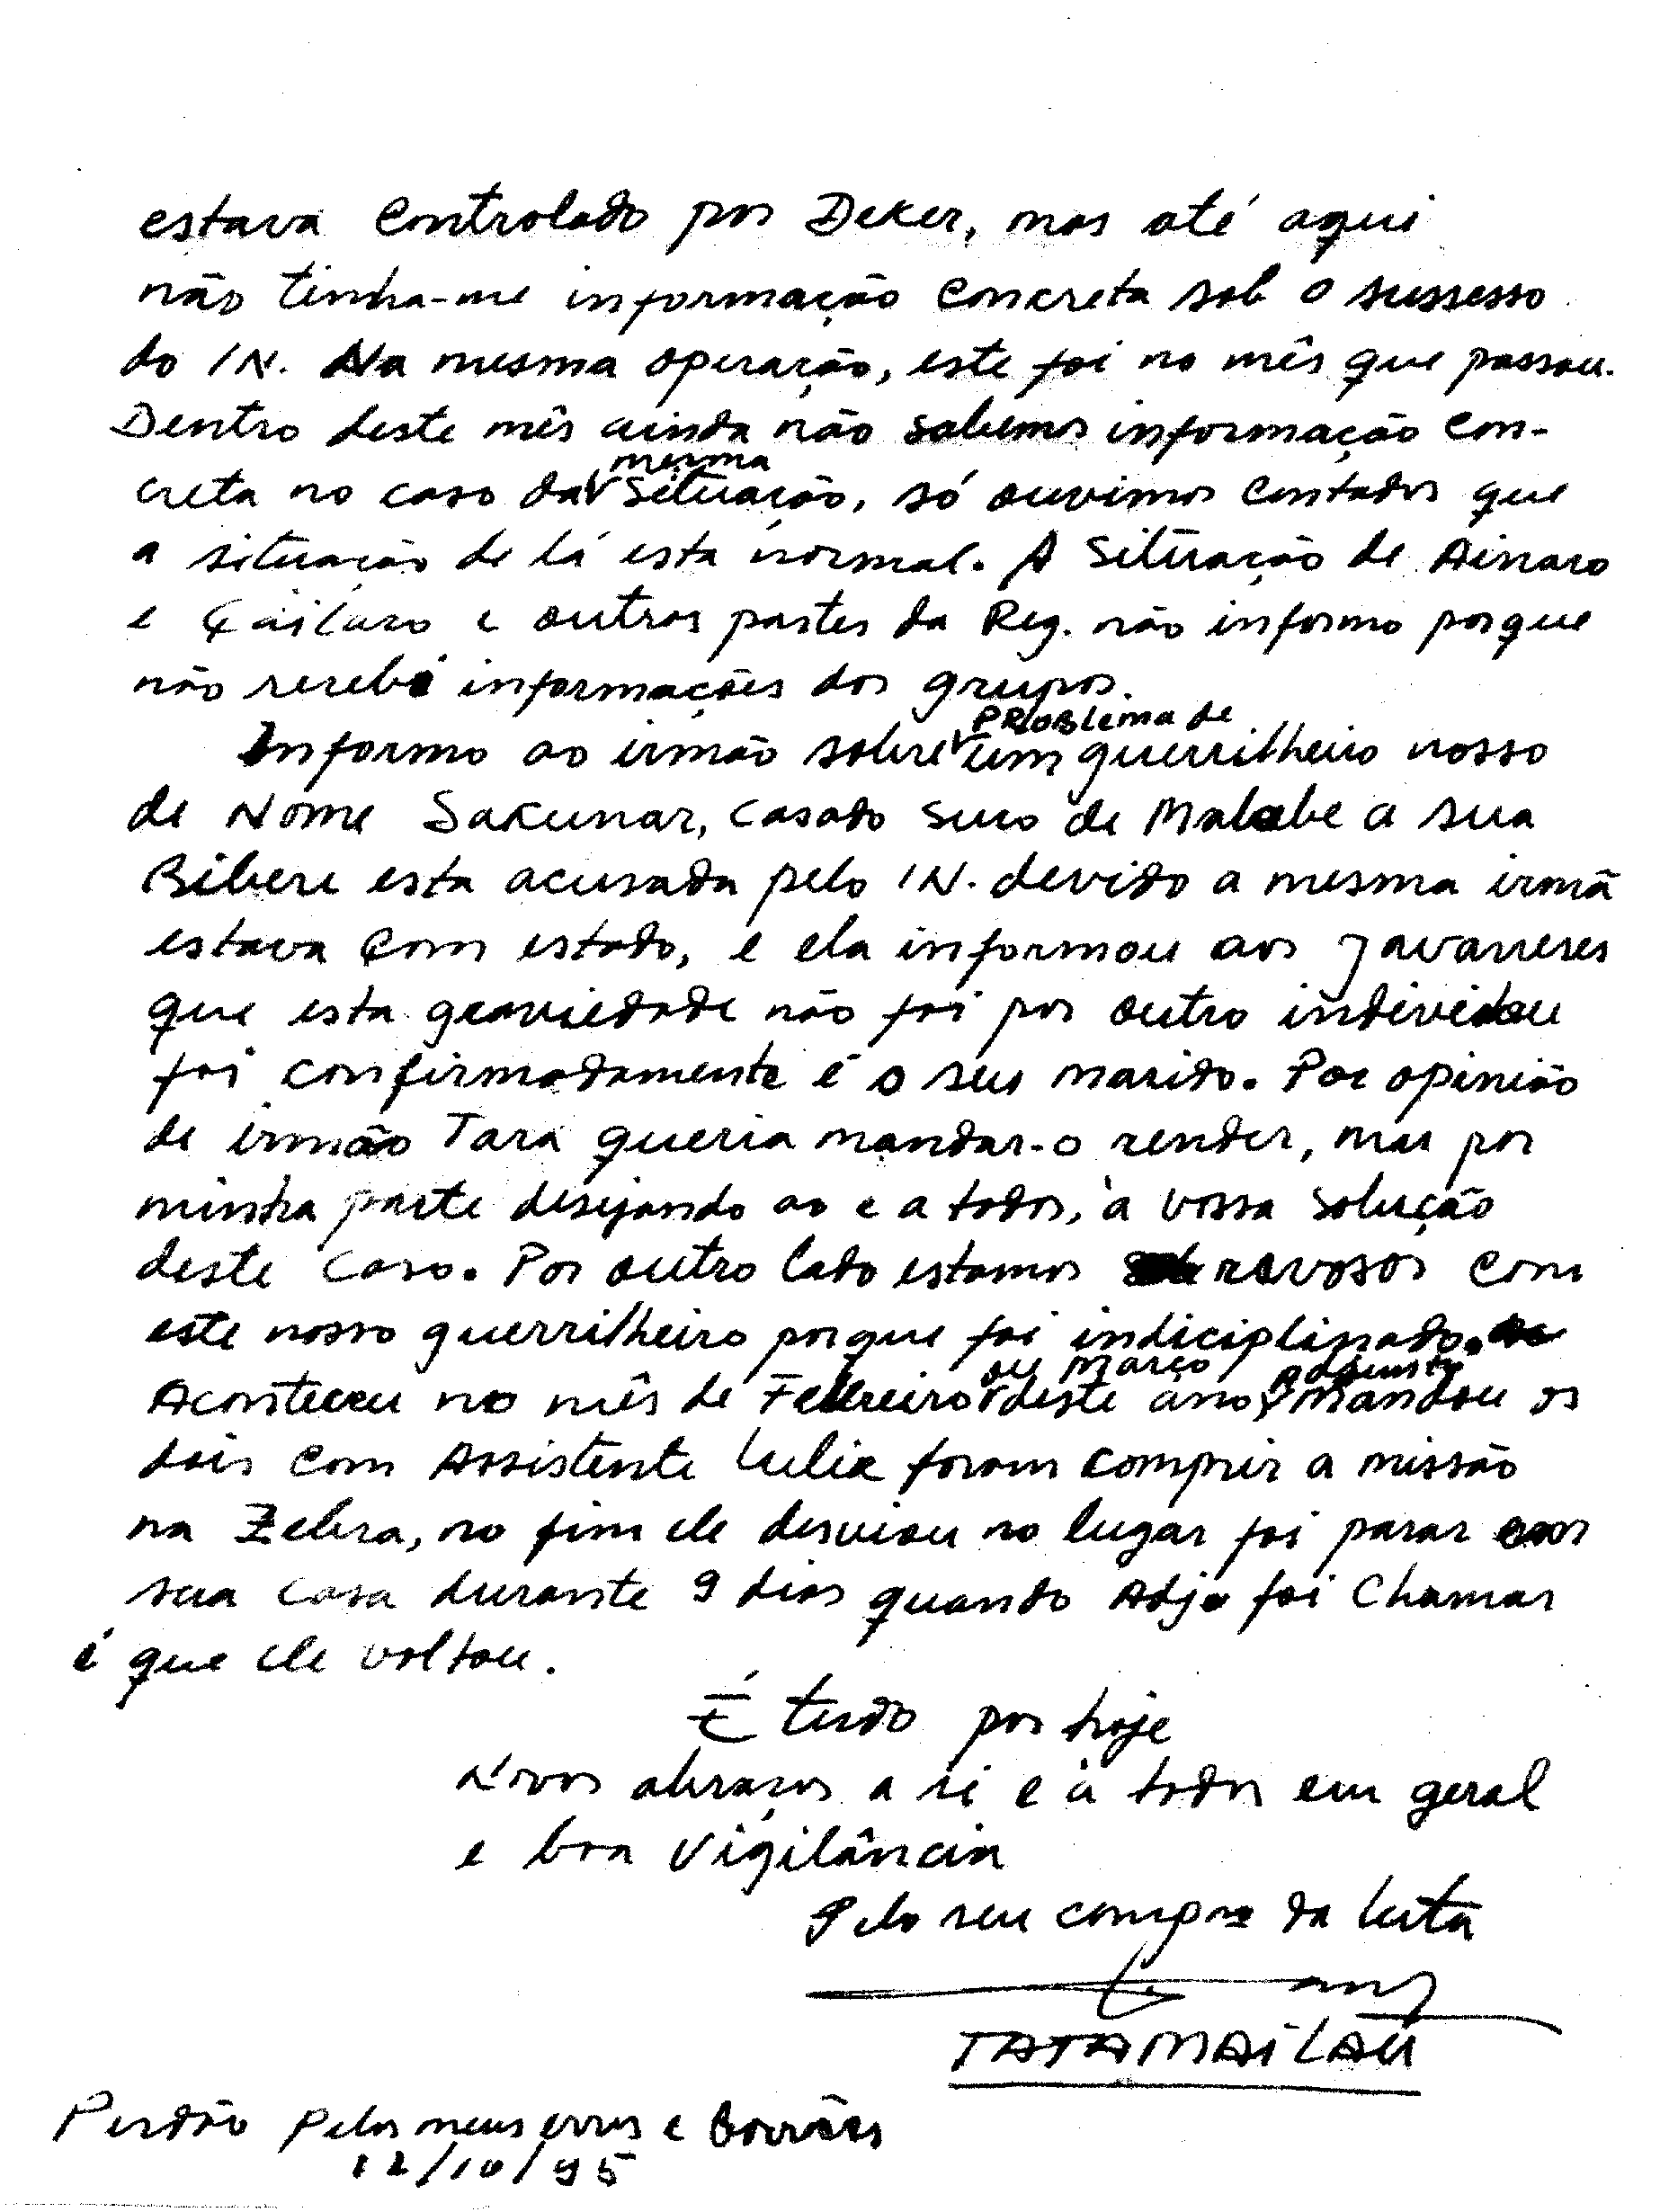 estava controlado por Deker, mas até aqui
não tinha-me informação concreta sob o sussesso
do IN. Na mesma operação, este foi no mês que passou.
Dentro deste mês ainda não sabemos informação con-
creta no caso da mesma situação, só ouvimos contados que
a situação de lá esta normal. A situação de Ainaro
e Çailaco e outras partes da Reg. não informo porque
não recebi informações dos grupos.
Informo ao irmão sobre PROBlema de um guerrilheiro nosso
de Nome Sakunar, casado suco de Malabe a sua
Bibere esta acusada pelo IN. devido a mesma irmã
estava com estado, e ela informou aos Javaneses
que esta graviedade não foi por outro individou
foi confirmadamente é o seu marido. Por opinião
de irmão Tara queria mandar-o render, mas por
minha parte desejando ao e a todos, à vossa solução
deste caso. Por outro lado estamos ravosos com
este nosso guerrilheiro porque foi indiciplinado.
Aconteceu no mês de Febreiro ou Março deste ano, Adjunto mandou os
dois com Assistente Lulik foram comprir a missão
na Zebra, no fim ele desviou no lugar foi parar em
sua casa durante 9 dias quando Adjo foi chamar
é que ele voltou.
É tudo por hoje
Novos abraços a si e à todos em geral
e boa vigilância
Pelo seu compo da luta
TATAMAiLAU
Perdão pelos meus erros e borrões
12/10/95